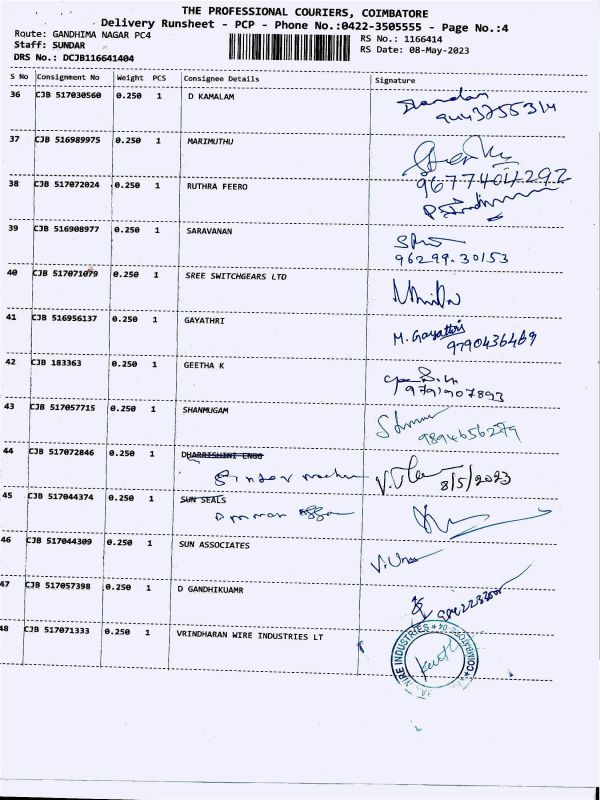 THE PROFESSIONAL COURIERS, COIMBATORE
Delivery Runsheet - PCP - Phone No.:0422-3505555 - Page No.:4
Route: GANDHIMA NAGAR PC4 RS No.: 1166414
Staff: SUNDAR RS Date: 08-May-2023
DRS No.: DCJB116641404
S No Consignment No Weight PCS Consignee Details Signature
36 CJB 517030560 0.250 1 D KAMALAM
37 CJB 516989975 0.250 1 MARIMUTHU
9677404292
38 CJB 517072024 0.250 1 RUTHRA FEERO
39 CJB 516908977 0.250 1 SARAVANAN
96299.30153
40 CJB 517071079 0.250 1 SREE SWITCHGEARS LTD
41 CJB 516956137 0.250 1 GAYATHRI M. Gayathri
9790436469
42 CJB 183363 0.250 1 GEETHA K
9791907893
43 CJB 517057715 0.250 1 SHANMUGAM
9894656279
44 CJB 517072846 0.250 1 DHARRISHINI ENGG
8/5/2023
45 CJB 517044374 0.250 1 SUN SEALS
46 CJB 517044309 0.250 1 SUN ASSOCIATES
47 CJB 517057398 0.250 1 D GANDHIKUAMR
48 CJB 517071333 0.250 1 VRINDHARAN WIRE INDUSTRIES LT
WIRE INDUSTRIES